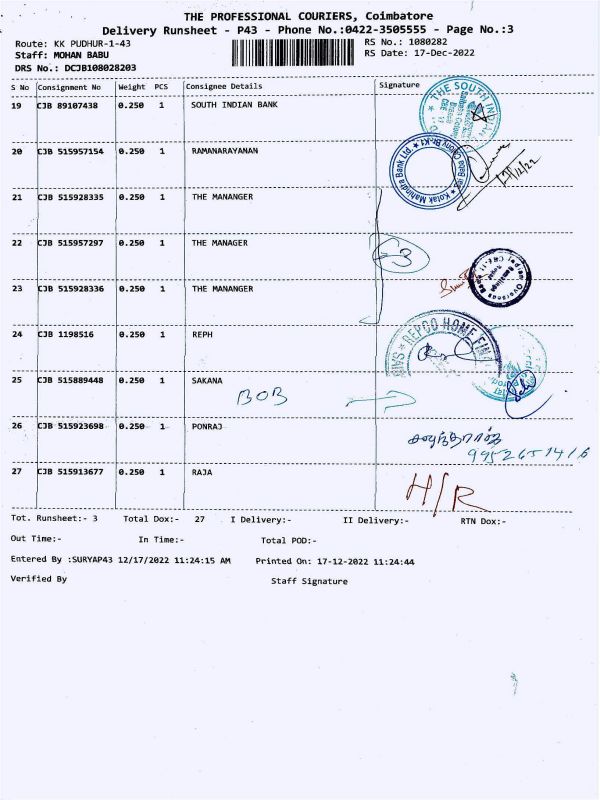 THE PROFESSIONAL COURIERS, Coimbatore
Delivery Runsheet - P43 - Phone No.:0422-3505555 - Page No.:3
Route: KK PUDHUR-1-43 RS No.: 1080282
Staff: MOHAN BABU RS Date: 17-Dec-2022
DRS No.: DCJB108028203
S No Consignment No Weight PCS Consignee Details Signature
19 CJB 89107438 0.250 1 SOUTH INDIAN BANK
THE SOUTH INDIAN
20 CJB 515957154 0.250 1 RAMANARAYANAN
Kotak Mahindra Bank Ltd.
17/12/22
21 CJB 515928335 0.250 1 THE MANANGER
22 CJB 515957297 0.250 1 THE MANAGER
Indian Overseas Bank
23 CJB 515928336 0.250 1 THE MANANGER
24 CJB 1198516 0.250 1 REPH
REPCO HOME FIN
25 CJB 515889448 0.250 1 SAKANA
BOB
26 CJB 515923698 0.250 1 PONRAJ
27 CJB 515913677 0.250 1 RAJA
H/R
Tot. Runsheet:- 3 Total Dox:- 27 I Delivery:- II Delivery:- RTN Dox:-
Out Time:- In Time:- Total POD:-
Entered By :SURYAP43 12/17/2022 11:24:15 AM Printed On: 17-12-2022 11:24:44
Verified By Staff Signature